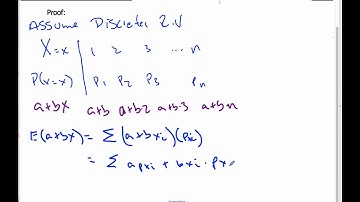 Proof:
Assume Discrete R.V
X=x | 1 2 3 ... n
P(X=x) | P1 P2 P3 Pn
a+bX a+b a+b2 a+b·3 a+bn
E(a+bX) = Σ (a+bxi)(Pi)
= Σ apxi + bxi · px